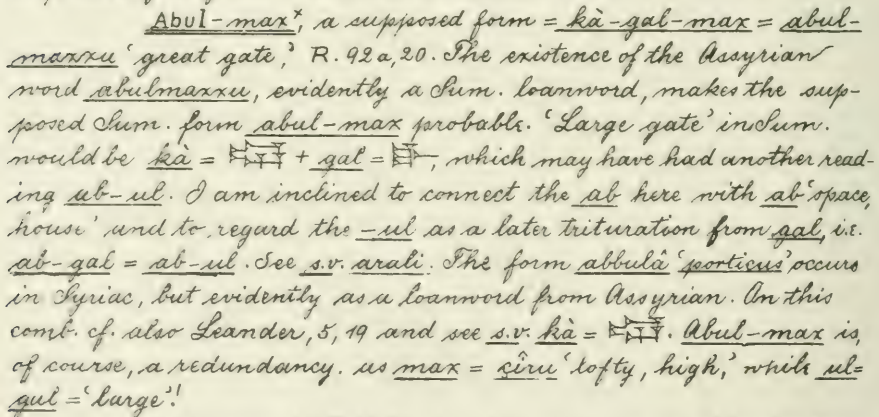 Abul-maxˣ, a supposed form = kà-gal-max = abul-
maxxu 'great gate,' R. 92a, 20. The existence of the Assyrian
word abulmaxxu, evidently a Sum. loanword, makes the sup-
posed Sum. form abul-max probable. 'Large gate' in Sum.
would be kà = + gal = , which may have had another read-
ing ab-ul. I am inclined to connect the ab here with ab 'space,
house' and to regard the -ul as a later trituration from gal, i.e.
ab-gal = ab-ul. See s.v. arali. The form abbulâ 'porticus' occurs
in Syriac, but evidently as a loanword from Assyrian. On this
comb. cf. also Leander, 5, 19 and see s.v. kà = . Abul-max is,
of course, a redundancy. as max = çîru 'lofty, high,' while ul=
gul = 'large'!